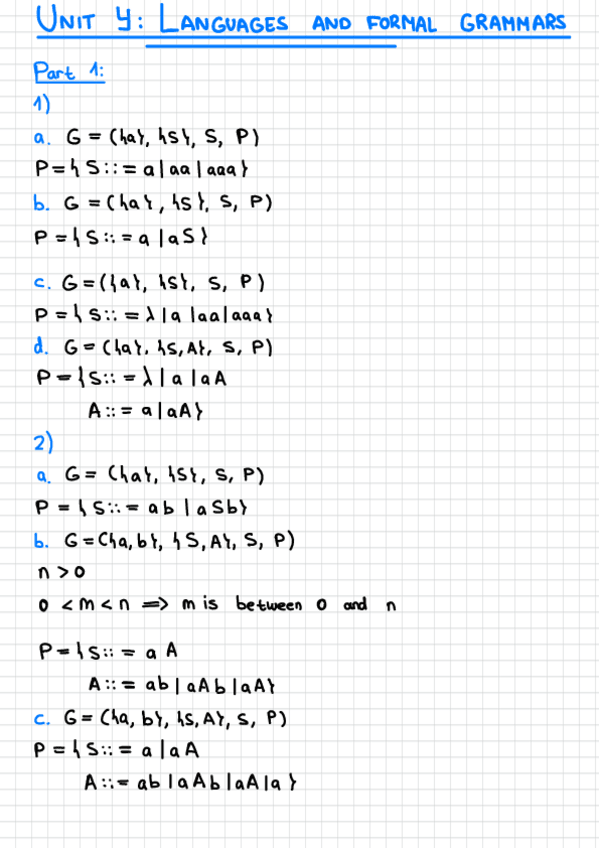 UNIT 4: LANGUAGES AND FORMAL GRAMMARS
Part 1:
1)
a. G = ({a}, {S}, S, P)
P = { S ::= a | aa | aaa }
b. G = ({a}, {S}, S, P)
P = { S ::= a | aS }
c. G = ({a}, {S}, S, P)
P = { S ::= λ | a | aa | aaa }
d. G = ({a}, {S, A}, S, P)
P = { S ::= λ | a | aA
A ::= a | aA }
2)
a. G = ({a}, {S}, S, P)
P = { S ::= ab | aSb }
b. G = ({a, b}, {S, A}, S, P)
n > 0
0 < m < n ⟹ m is between 0 and n
P = { S ::= a A
A ::= ab | aAb | aA }
c. G = ({a, b}, {S, A}, S, P)
P = { S ::= a | aA
A ::= ab | aAb | aA | a }